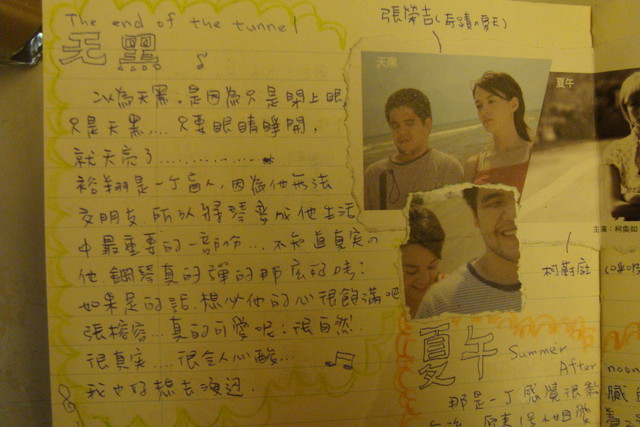 The end of the tunnel
天黑
以為天黑，是因為只是閉上眼
只是天黑.... 只要眼睛睜開，
就天亮了.............
裕翔是一个盲人，因為他無法
交朋友 所以將琴變成他生活
中最重要的一部份... 不知道真實の
他 鋼琴真的彈的那麼的味：
如果是的話.想必他的心很飽滿吧
張榕容...真的可愛呢：很自然.
很真實....很令人心酸...
我也好想去海边.
張榮吉(奇蹟の夏天)
天黑
夏午
主演：柯奐如
柯蔚庭
夏午 Summer
Afternoon
那是一丁感覺很